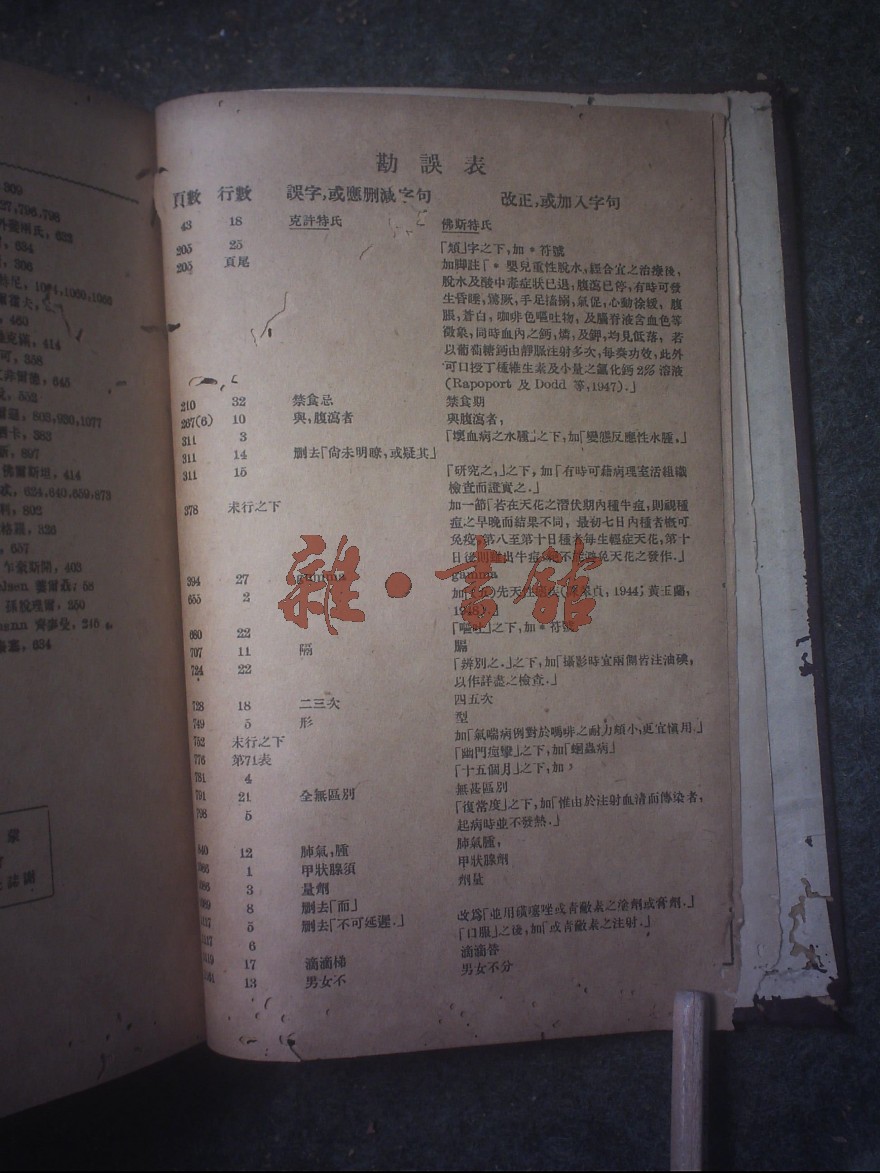 勘誤表
頁數 行數 誤字,或應删減字句 改正,或加入字句
43 18 克許特氏 佛斯特氏
205 25 「煩」字之下,加 * 符號
205 頁尾 加脚註「* 嬰兒重性脫水,經合宜之治療後,
脫水及酸中毒症狀已退,腹瀉已停,有時可發
生昏睡,驚厥,手足搐搦,氣促,心動徐緩,腹
脹,蒼白,咖啡色嘔吐物,及腦脊液含血色等
徵象,同時血內之鈣,燐,及鉀,均見低落,若
以葡萄糖鈣由靜脈注射多次,每奏功效,此外
可口授丁種維生素及小量之氯化鈣2%溶液
(Rapoport 及 Dodd 等,1947).」
210 32 禁食忌 禁食期
267(6) 10 與,腹瀉者 與腹瀉者,
311 3 「壞血病之水腫」之下,加「變態反應性水腫,」
311 14 删去「尙未明瞭,或疑其」
311 15 「研究之,」之下,加「有時可藉病理室活組織
檢查而證實之.」
378 末行之下 加一節「若在天花之潛伏期內種牛痘,則視種
痘之早晚而結果不同,最初七日內種者槪可
免疫,第八至第十日種者每生輕症天花,第十
日後則雖出牛痘,
避免天花之發作.」
394 27 gamma
655 2 先天性
1944; 黃玉蘭,
680 22 「嘔吐」之下,加 * 符號
707 11 隔 膈
724 22 「辨別之.」之下,加「攝影時宜兩側皆注油碘,
以作詳盡之檢查.」
728 18 二三次 四五次
749 5 形 型
752 末行之下 加「氣喘病例對於嗎啡之耐力頗小,更宜愼用.」
776 第71表 「幽門痙攣」之下,加「蛔蟲病」
781 4 「十五個月」之下,加,
791 21 全無區別 無甚區別
798 5 「復常度」之下,加「惟由於注射血清而傳染者,
起病時並不發熱.」
12 肺氣,腫 肺氣腫,
1 甲狀腺須 甲狀腺劑
3 量劑 劑量
8 删去「而」
5 删去「不可延遲.」 改爲「並用磺噻唑或靑黴素之塗劑或膏劑.」
6 「口服」之後,加「或靑黴素之注射.」
17 滴滴梯 滴滴答
13 男女不 男女不分
309
27,796,798
623
634
306
1060,1065
460
414
358
645
552
803,930,1077
383
897
佛爾斯坦, 414
624,640,659,873
802
326
657
403
58
250
245
634